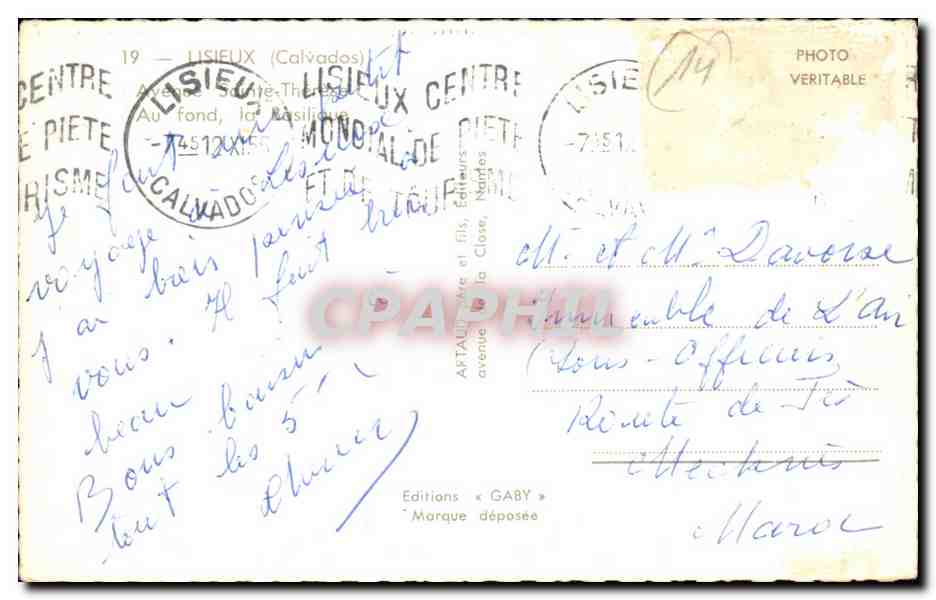 19 — LISIEUX (Calvados)
Avenue Sainte-Thérèse
Au fond, la Basilique
CENTRE
DE PIETE
RISME
LISIEUX
-7 45 12 XI 55
CALVADOS
LISIEUX CENTRE
MONDIAL DE PIETE
ET DE TOURISME
LISIE
-7 45 1
CALVA
14
PHOTO
VERITABLE
Je fait un petit
voyage à Lisieux
j'ai bien pensée à
vous. Il fait bien
beau
Bons baisers
tout les 5
ARTAUD Père et Fils, Éditeurs
avenue de la Close, Nantes
CPAPHIL
M. et Me Davorse
Immeuble de L'air
(Sous-Officiers
Route de Fès
Mecknès
Maroc
Editions « GABY »
Marque déposée